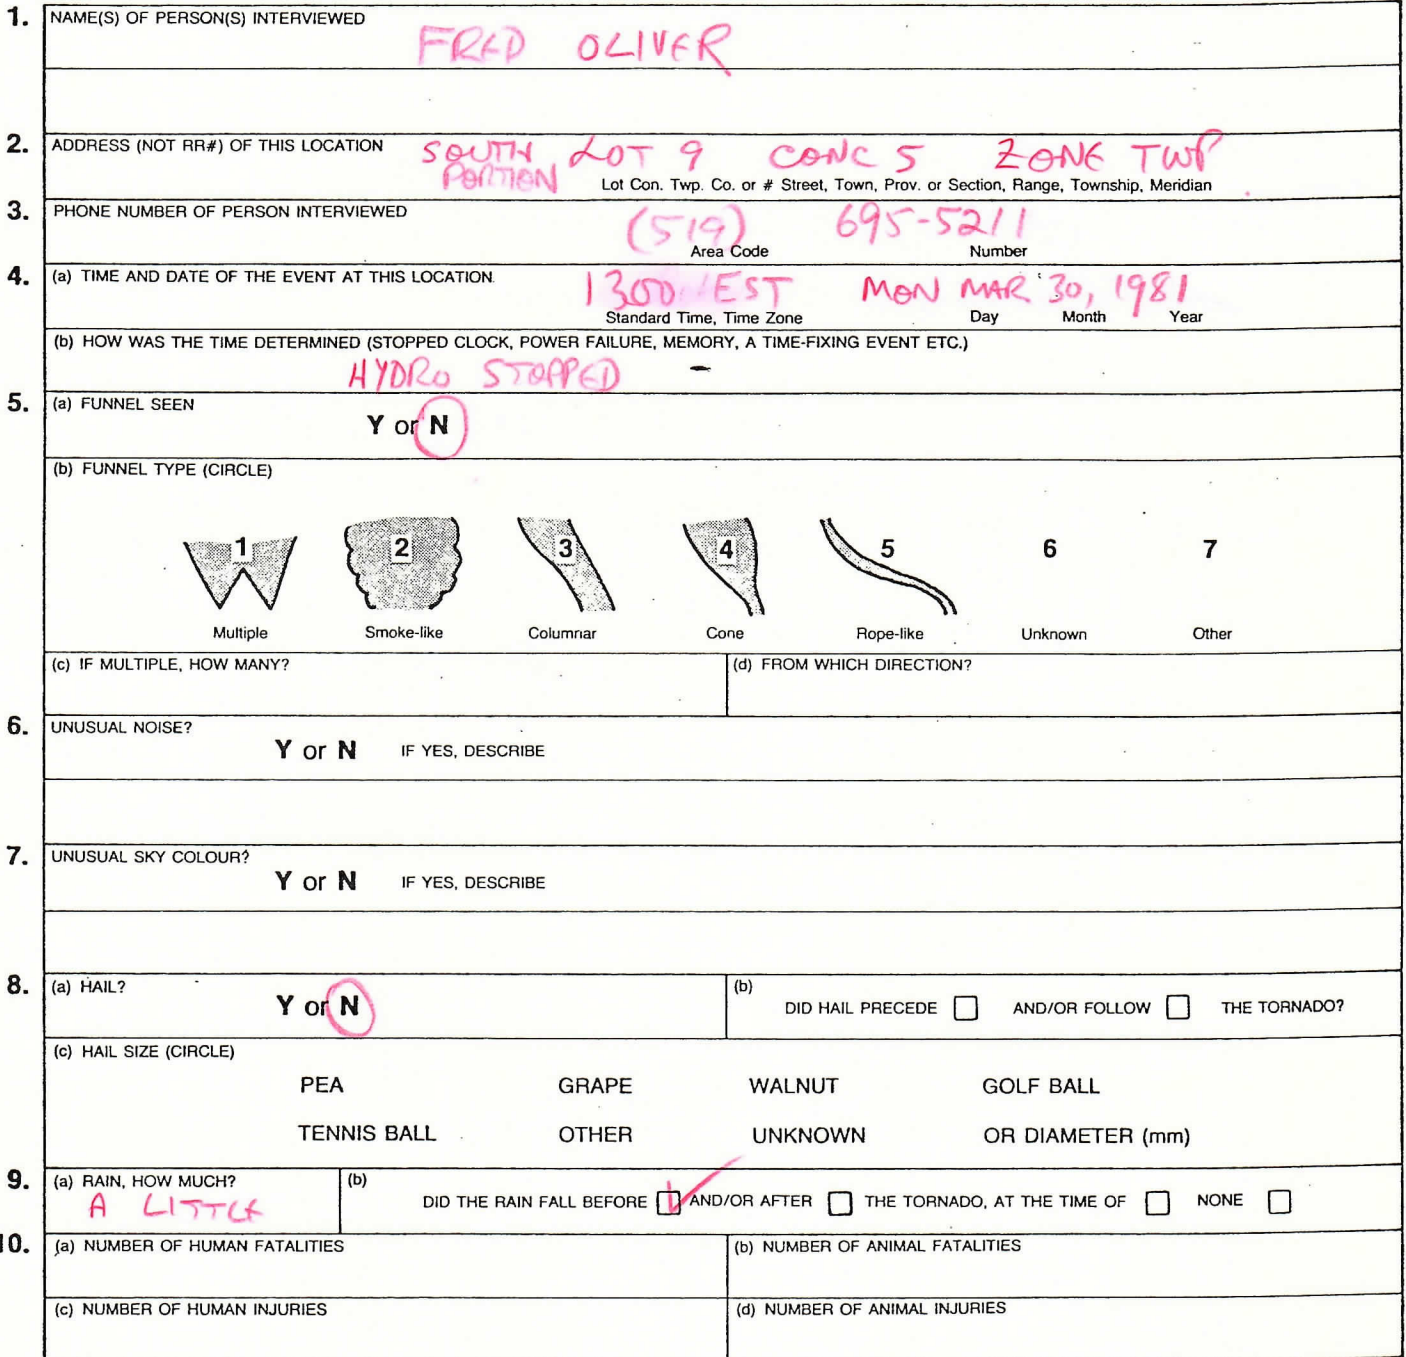 1. NAME(S) OF PERSON(S) INTERVIEWED
FRED OLIVER
2. ADDRESS (NOT RR#) OF THIS LOCATION SOUTH PORTION LOT 9 CONC 5 ZONE TWP
Lot Con. Twp. Co. or # Street, Town, Prov. or Section, Range, Township, Meridian
3. PHONE NUMBER OF PERSON INTERVIEWED (519) 695-5211
Area Code Number
4. (a) TIME AND DATE OF THE EVENT AT THIS LOCATION 1300 EST MON MAR 30, 1981
Standard Time, Time Zone Day Month Year
(b) HOW WAS THE TIME DETERMINED (STOPPED CLOCK, POWER FAILURE, MEMORY, A TIME-FIXING EVENT ETC.)
HYDRO STOPPED -
5. (a) FUNNEL SEEN
Y or N
(b) FUNNEL TYPE (CIRCLE)
1 2 3 4 5 6 7
Multiple Smoke-like Columnar Cone Rope-like Unknown Other
(c) IF MULTIPLE, HOW MANY? (d) FROM WHICH DIRECTION?
6. UNUSUAL NOISE?
Y or N IF YES, DESCRIBE
7. UNUSUAL SKY COLOUR?
Y or N IF YES, DESCRIBE
8. (a) HAIL? (b)
Y or N DID HAIL PRECEDE AND/OR FOLLOW THE TORNADO?
(c) HAIL SIZE (CIRCLE)
PEA GRAPE WALNUT GOLF BALL
TENNIS BALL OTHER UNKNOWN OR DIAMETER (mm)
9. (a) RAIN, HOW MUCH? (b)
A LITTLE DID THE RAIN FALL BEFORE AND/OR AFTER THE TORNADO, AT THE TIME OF NONE
10. (a) NUMBER OF HUMAN FATALITIES (b) NUMBER OF ANIMAL FATALITIES
(c) NUMBER OF HUMAN INJURIES (d) NUMBER OF ANIMAL INJURIES